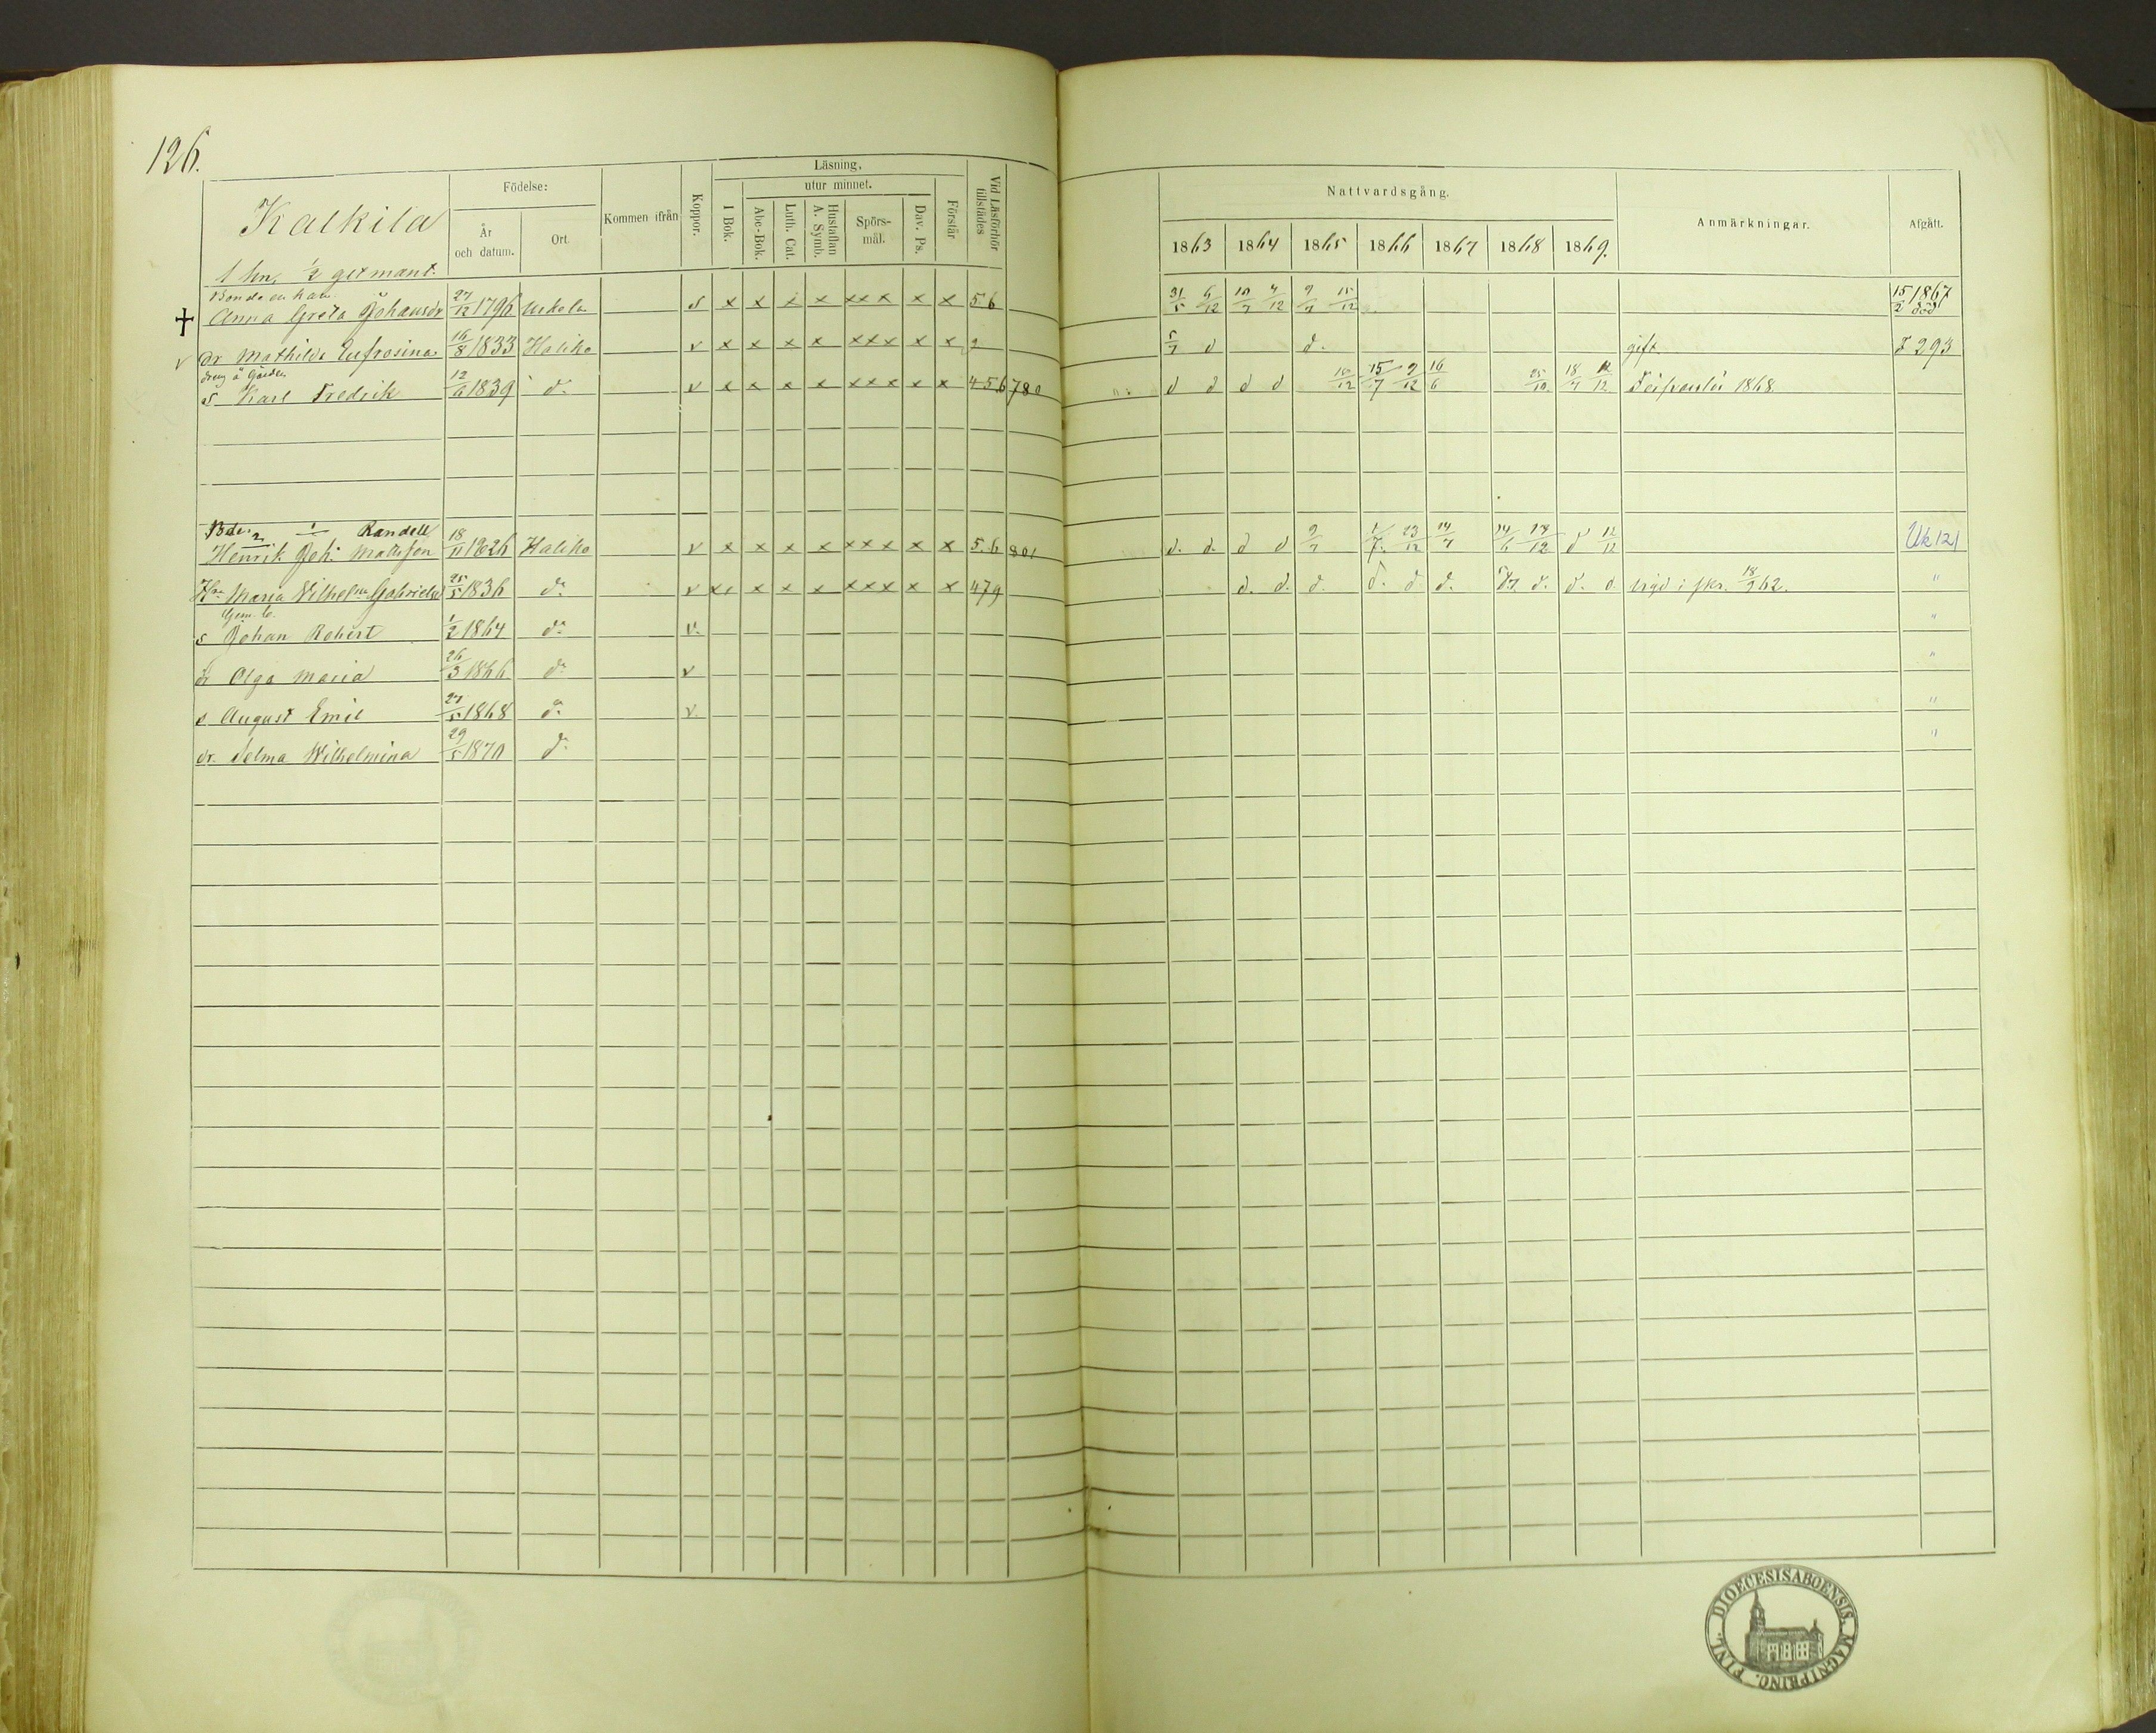 126.
Kalkila
1 hn, 1/2 get mant.
Födelse:
År och datum.
Ort.
Kommen ifrån
Koppor.
Läsning.
utur minnet.
I Bok.
Abc-Bok.
Luth. Cat.
Hustaflan A. Symb.
Spörs-mål.
Dav. Ps.
Förstår
Vid Läsförhör tillstädes
Nattvardsgång.
1863 1864 1865 1866 1867 1868 1869.
Anmärkningar.
Afgått.
Bonde
Anna Greta Johansdr 27/12 1796 s x x x x xxx x x 56 31/5 6/12 10/7 4/12 9/7 15/12 15/2 1867 död
v dr Mathilda Eufrosina 16/8 1833 Haliko v x x x x xxx x x 2 5/7 d d. gift I 293
dreng å Gården
s Karl Fredrik 12/6 1839 do v x x x x xxx x x 456 780 d d d d 15/12 15/7 9/12 16/6 25/10 18/7 12/12 1868
Randell
Henrik Joh: Mattsson 18/11 1826 Haliko v x x x x xxx x x 5.6 801 d. d. d d 9/7 1/7 23/12 14/7 14/6 13/12 d 12/12 Uk 121
Hu Maria Wilhelma Gabrielsd 25/5 1836 do v xx x x x xxx x x 479 d. d. d. d. d. d. d. d. d. i skr. 18/9 62. "
s Johan Robert 1/2 1864 do v. "
dr Olga Maria 26/3 1866 do v "
s August Emil 27/5 1868 do v. "
dr. Selma Wilhelmina 29/5 1870 do "
DIOECESISABOENSIS. MAGNIPRINC. FINL.